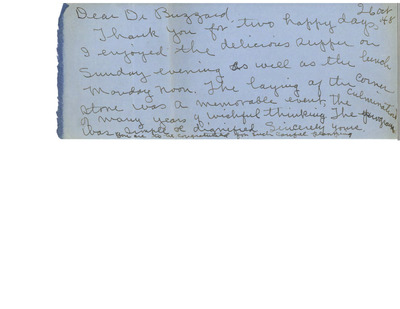 Dear Dr Buzzard. 26 Oct 48
Thank you for two happy days.
I enjoyed the delicious supper on
Sunday evening as well as the lunch
Monday noon. The laying of the corner
stone was a memorable event, the culmination
of many years of wishful thinking The program
was simple & dignified. Sincerely yours,
You are to be congratulated for such careful planning